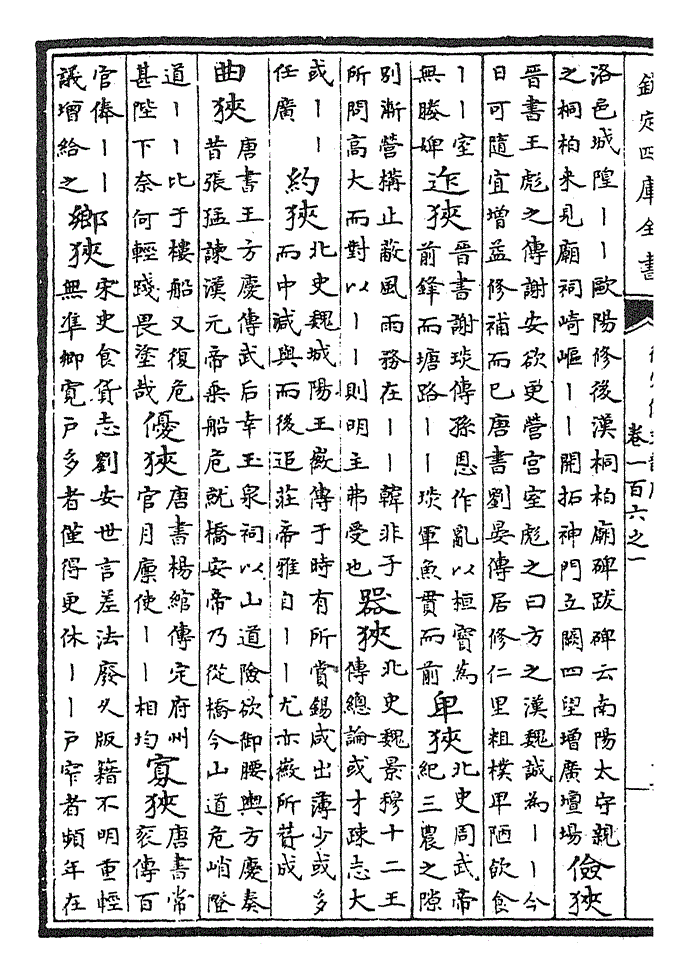 欽定四庫全書
卷一百六之一
洛邑城隍丨丨歐陽修後漢桐柏廟碑跋碑云南陽太守親
之桐柏来見廟祠崎嶇丨丨開拓神門立闕四望增廣壇場
儉狹
晉書王彪之傳謝安欲更營宮室彪之曰方之漢魏誠為丨丨今
日可隨宜增益修補而已唐書劉晏傳居修仁里粗樸卑陋飲食
丨丨室
無媵婢
迮狹
晉書謝琰傳孫恩作亂以桓寶為
前鋒而塘路丨丨琰軍魚貫而前
卑狹
北史周武帝
紀三農之隙
别漸營構止蔽風雨務在丨丨韓非子
所問高大而對以丨丨則明主弗受也
器狹
北史魏景穆十二王
傳總論或才疎志大
或丨丨
任廣
約狹
北史魏城陽王徽傳于時有所賞錫咸出薄少或多
而中減與而後追莊帝雅自丨丨尤亦徽所贊成
曲狹
唐書王方慶傳武后幸玉泉祠以山道險欲御腰輿方慶奏
昔張猛諫漢元帝乗船危就橋安帝乃從橋今山道危峭隥
道丨丨比于樓船又復危
甚陛下奈何輕踐畏塗哉
優狹
唐書楊綰傳定府州
官月廩使丨丨相均
寡狹
唐書常
衮傳百
官俸丨丨
議增給之
鄉狹
宋史食貨志劉安世言差法廢久版籍不明重輕
無凖鄉寛戶多者僅得更休丨丨戶窄者頻年在